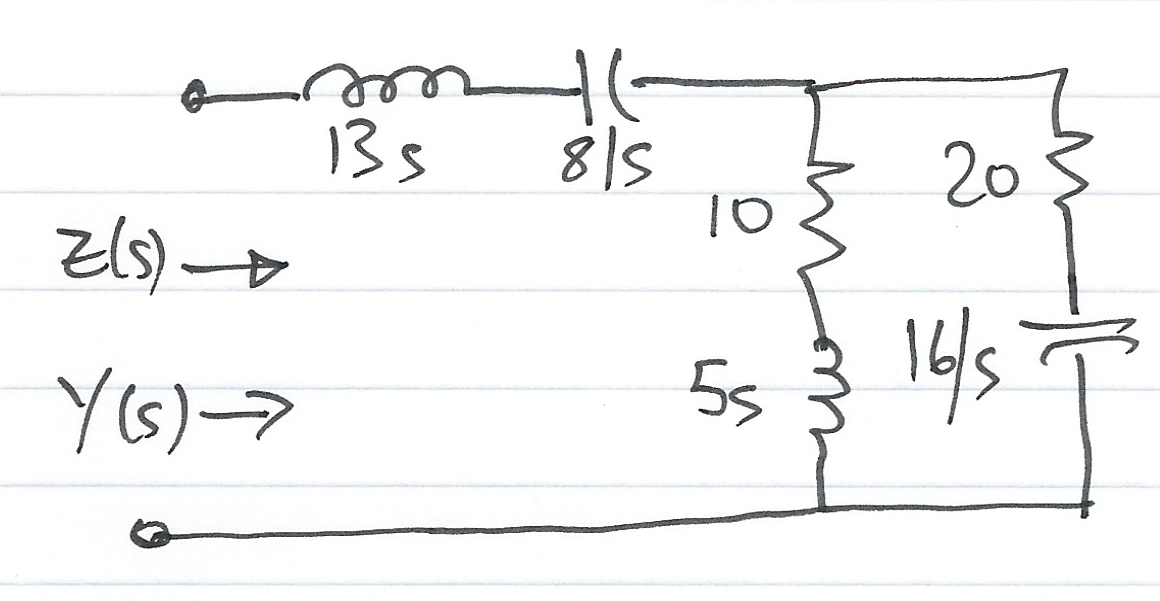 13s
8/s
10
20
Z(s) →
16/s
5s
Y(s) →